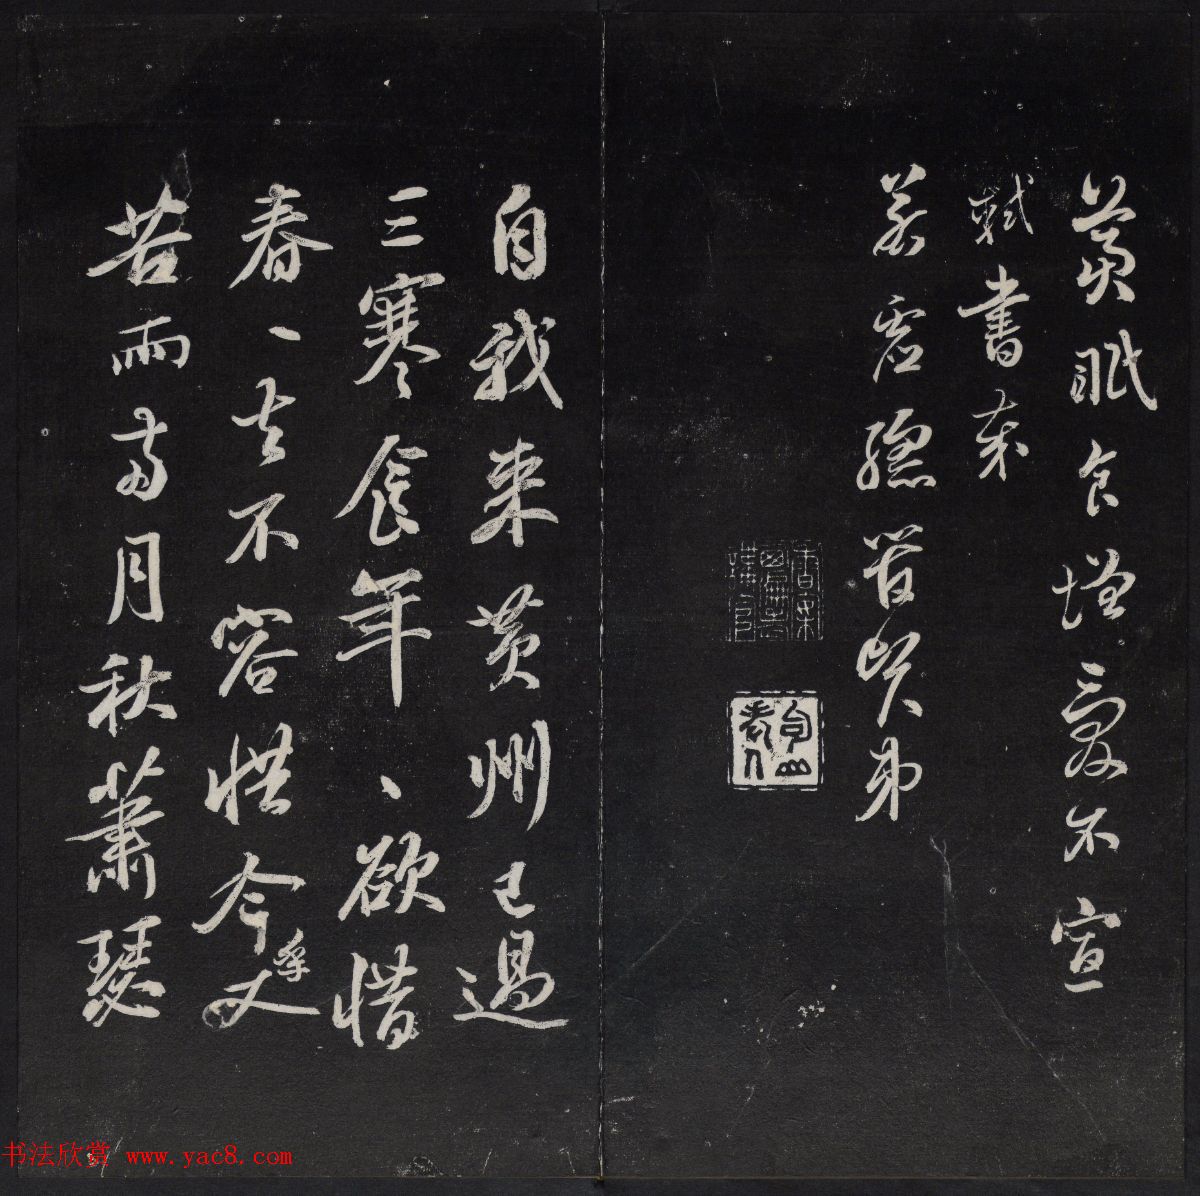 冀眠食增愛不宣
軾書奉
若虛總管賢弟
自我來黃州已過
三寒食年、欲惜
春、去不容惜今又
苦雨兩月秋蕭瑟
书法欣赏 www.yac8.com